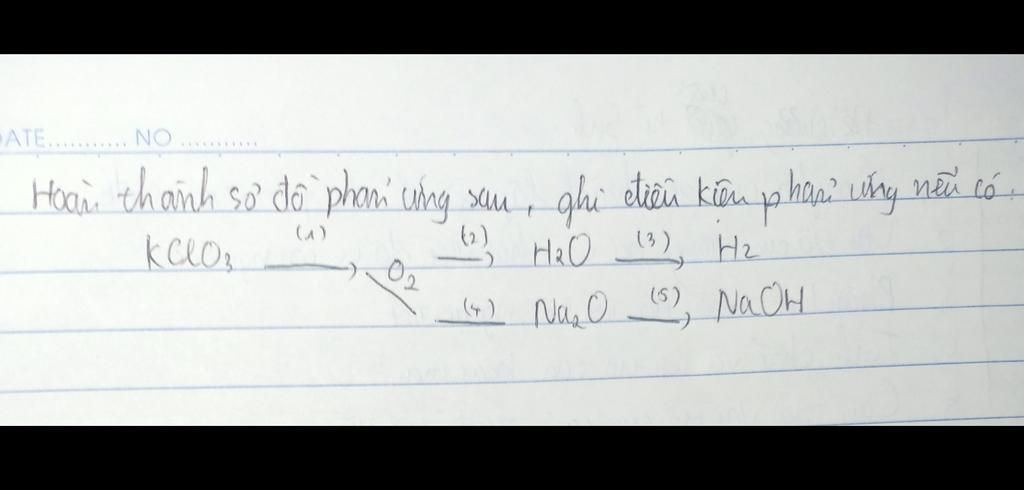 DATE............ NO ............
Hoàn thành sơ đồ phản ứng sau, ghi điều kiện phản ứng nếu có.
KClO₃ (1)→ O₂ (2)→ H₂O (3)→ H₂
(4) Na₂O (5)→ NaOH